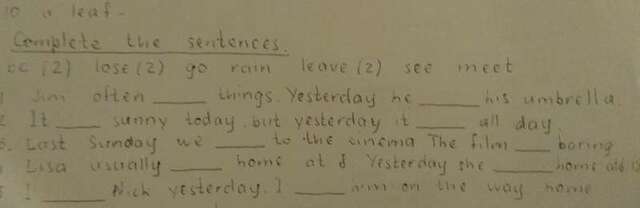 to a leaf-
Complete the sentences.
be (2) lose (2) go rain leave (2) see meet
1 Jim often ____ things. Yesterday he ____ his umbrella.
2 It ____ sunny today, but yesterday it ____ all day
3. Last Sunday we ____ to the cinema The film ____ boring
Lisa usually ____ home at 8 Yesterday she ____ home at
5 I ____ Nick yesterday. I ____ him on the way home